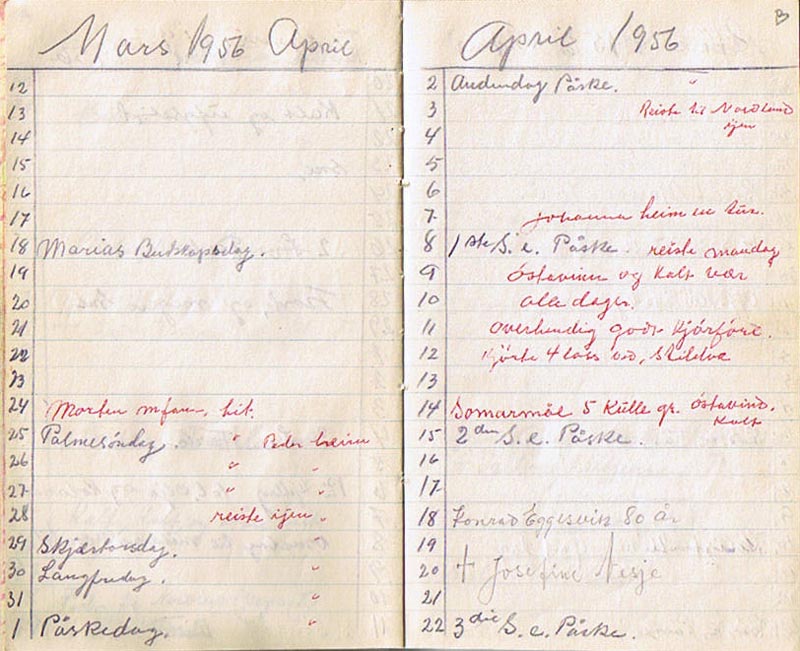 Mars 1956 April
12
13
14
15
16
17
18 Marias Budskapsdag.
19
20
21
22
23
24 Morten m fam. hit.
25 Palmesóndag. " Peder heim
26 "
27 " "
28 reiste igen "
29 Skjærtorsdag. "
30 Langfredag. "
31 "
1 Påskedag. "
B
April 1956
2 Andendag Påske. "
3 Reiste til Nordland
igen
4
5
6
7 Johanna heim en tur.
8 1ste S. e. Påske. reiste mandag
9 Östavinn og Kalt vær
10 alle dager.
11 overhendig godt Kjórfóre.
12 Kjórte 4 lass ved,
13
14 Somarmål 5 Kulle gr. östavind.
Kalt
15 2den S. e. Påske.
16
17
18 Konrad Eggesvik 80 år
19
20 + Josefine Nesje
21
22 3die S. e. Påske.